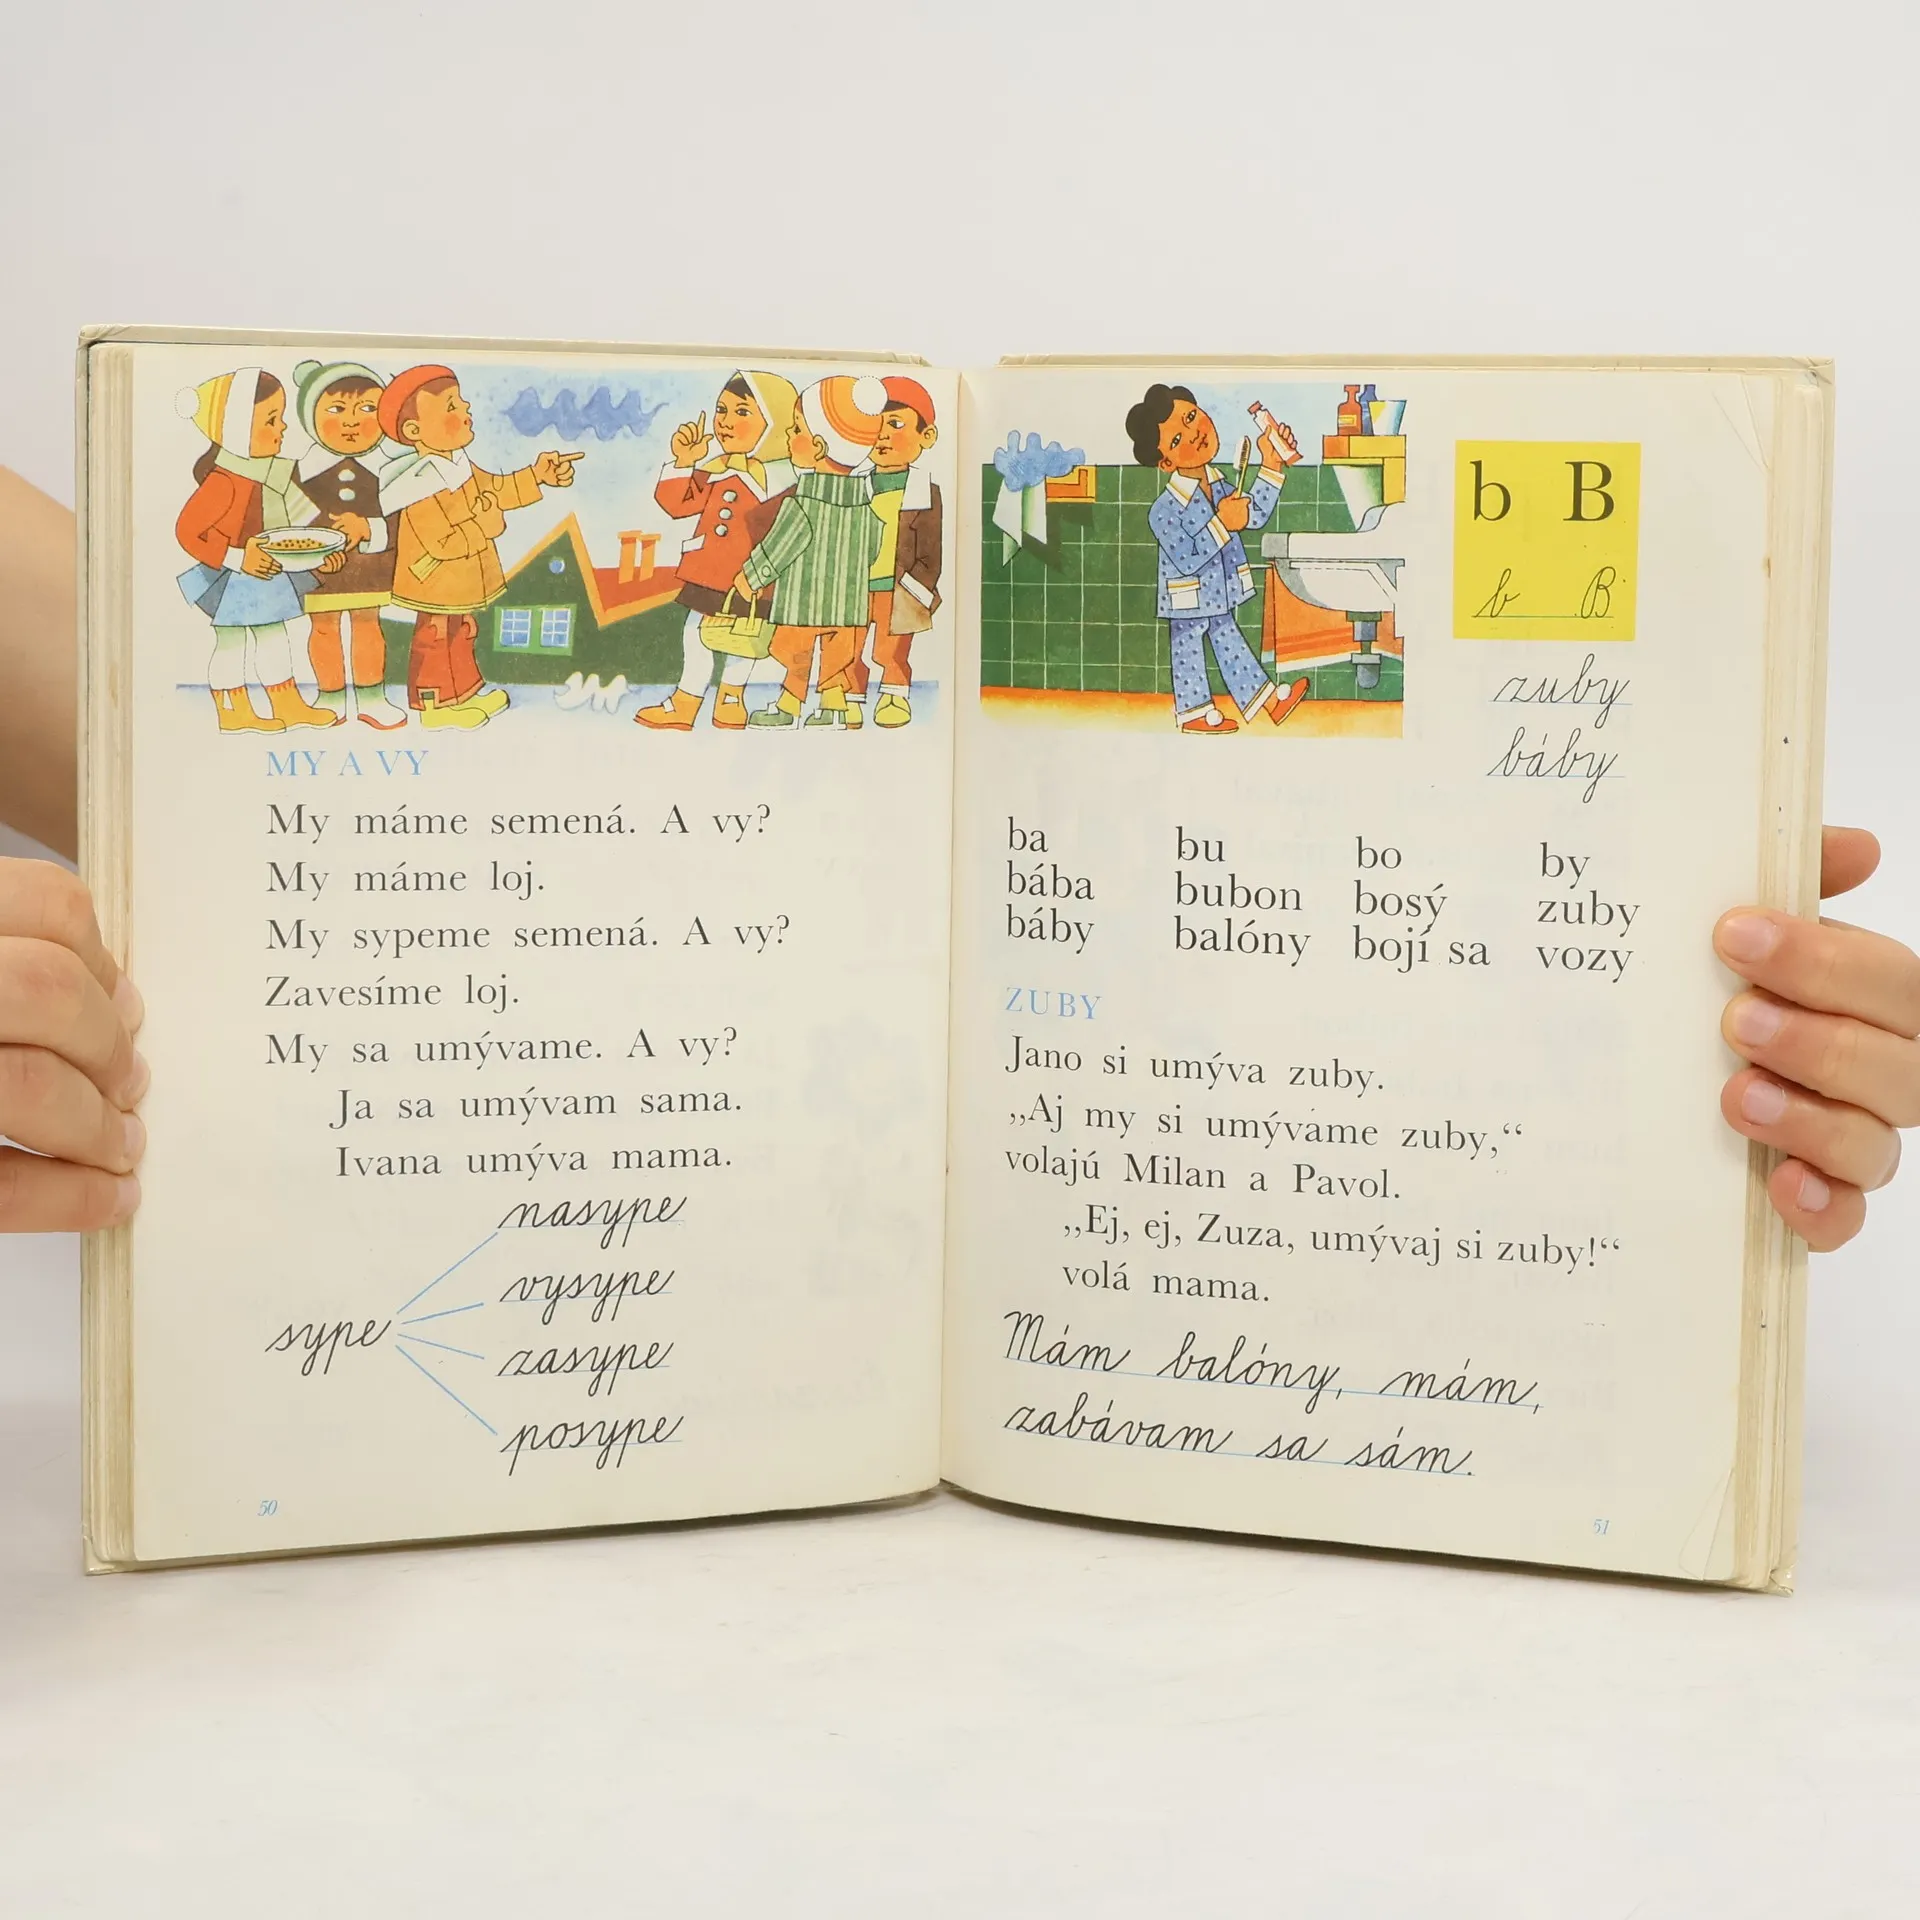 MY A VY
My máme semená. A vy?
My máme loj.
My sypeme semená. A vy?
Zavesíme loj.
My sa umývame. A vy?
Ja sa umývam sama.
Ivana umýva mama.
nasype
vysype
sype
zasype
posype
50
b B
b B
zuby
báby
ba bu bo by
bába bubon bosý zuby
báby balóny bojí sa vozy
ZUBY
Jano si umýva zuby.
„Aj my si umývame zuby,“
volajú Milan a Pavol.
„Ej, ej, Zuza, umývaj si zuby!“
volá mama.
Mám balóny, mám,
zabávam sa sám.
51